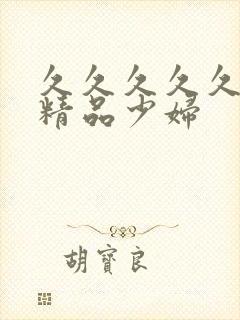 久久久久久
精品少婦
胡寶良